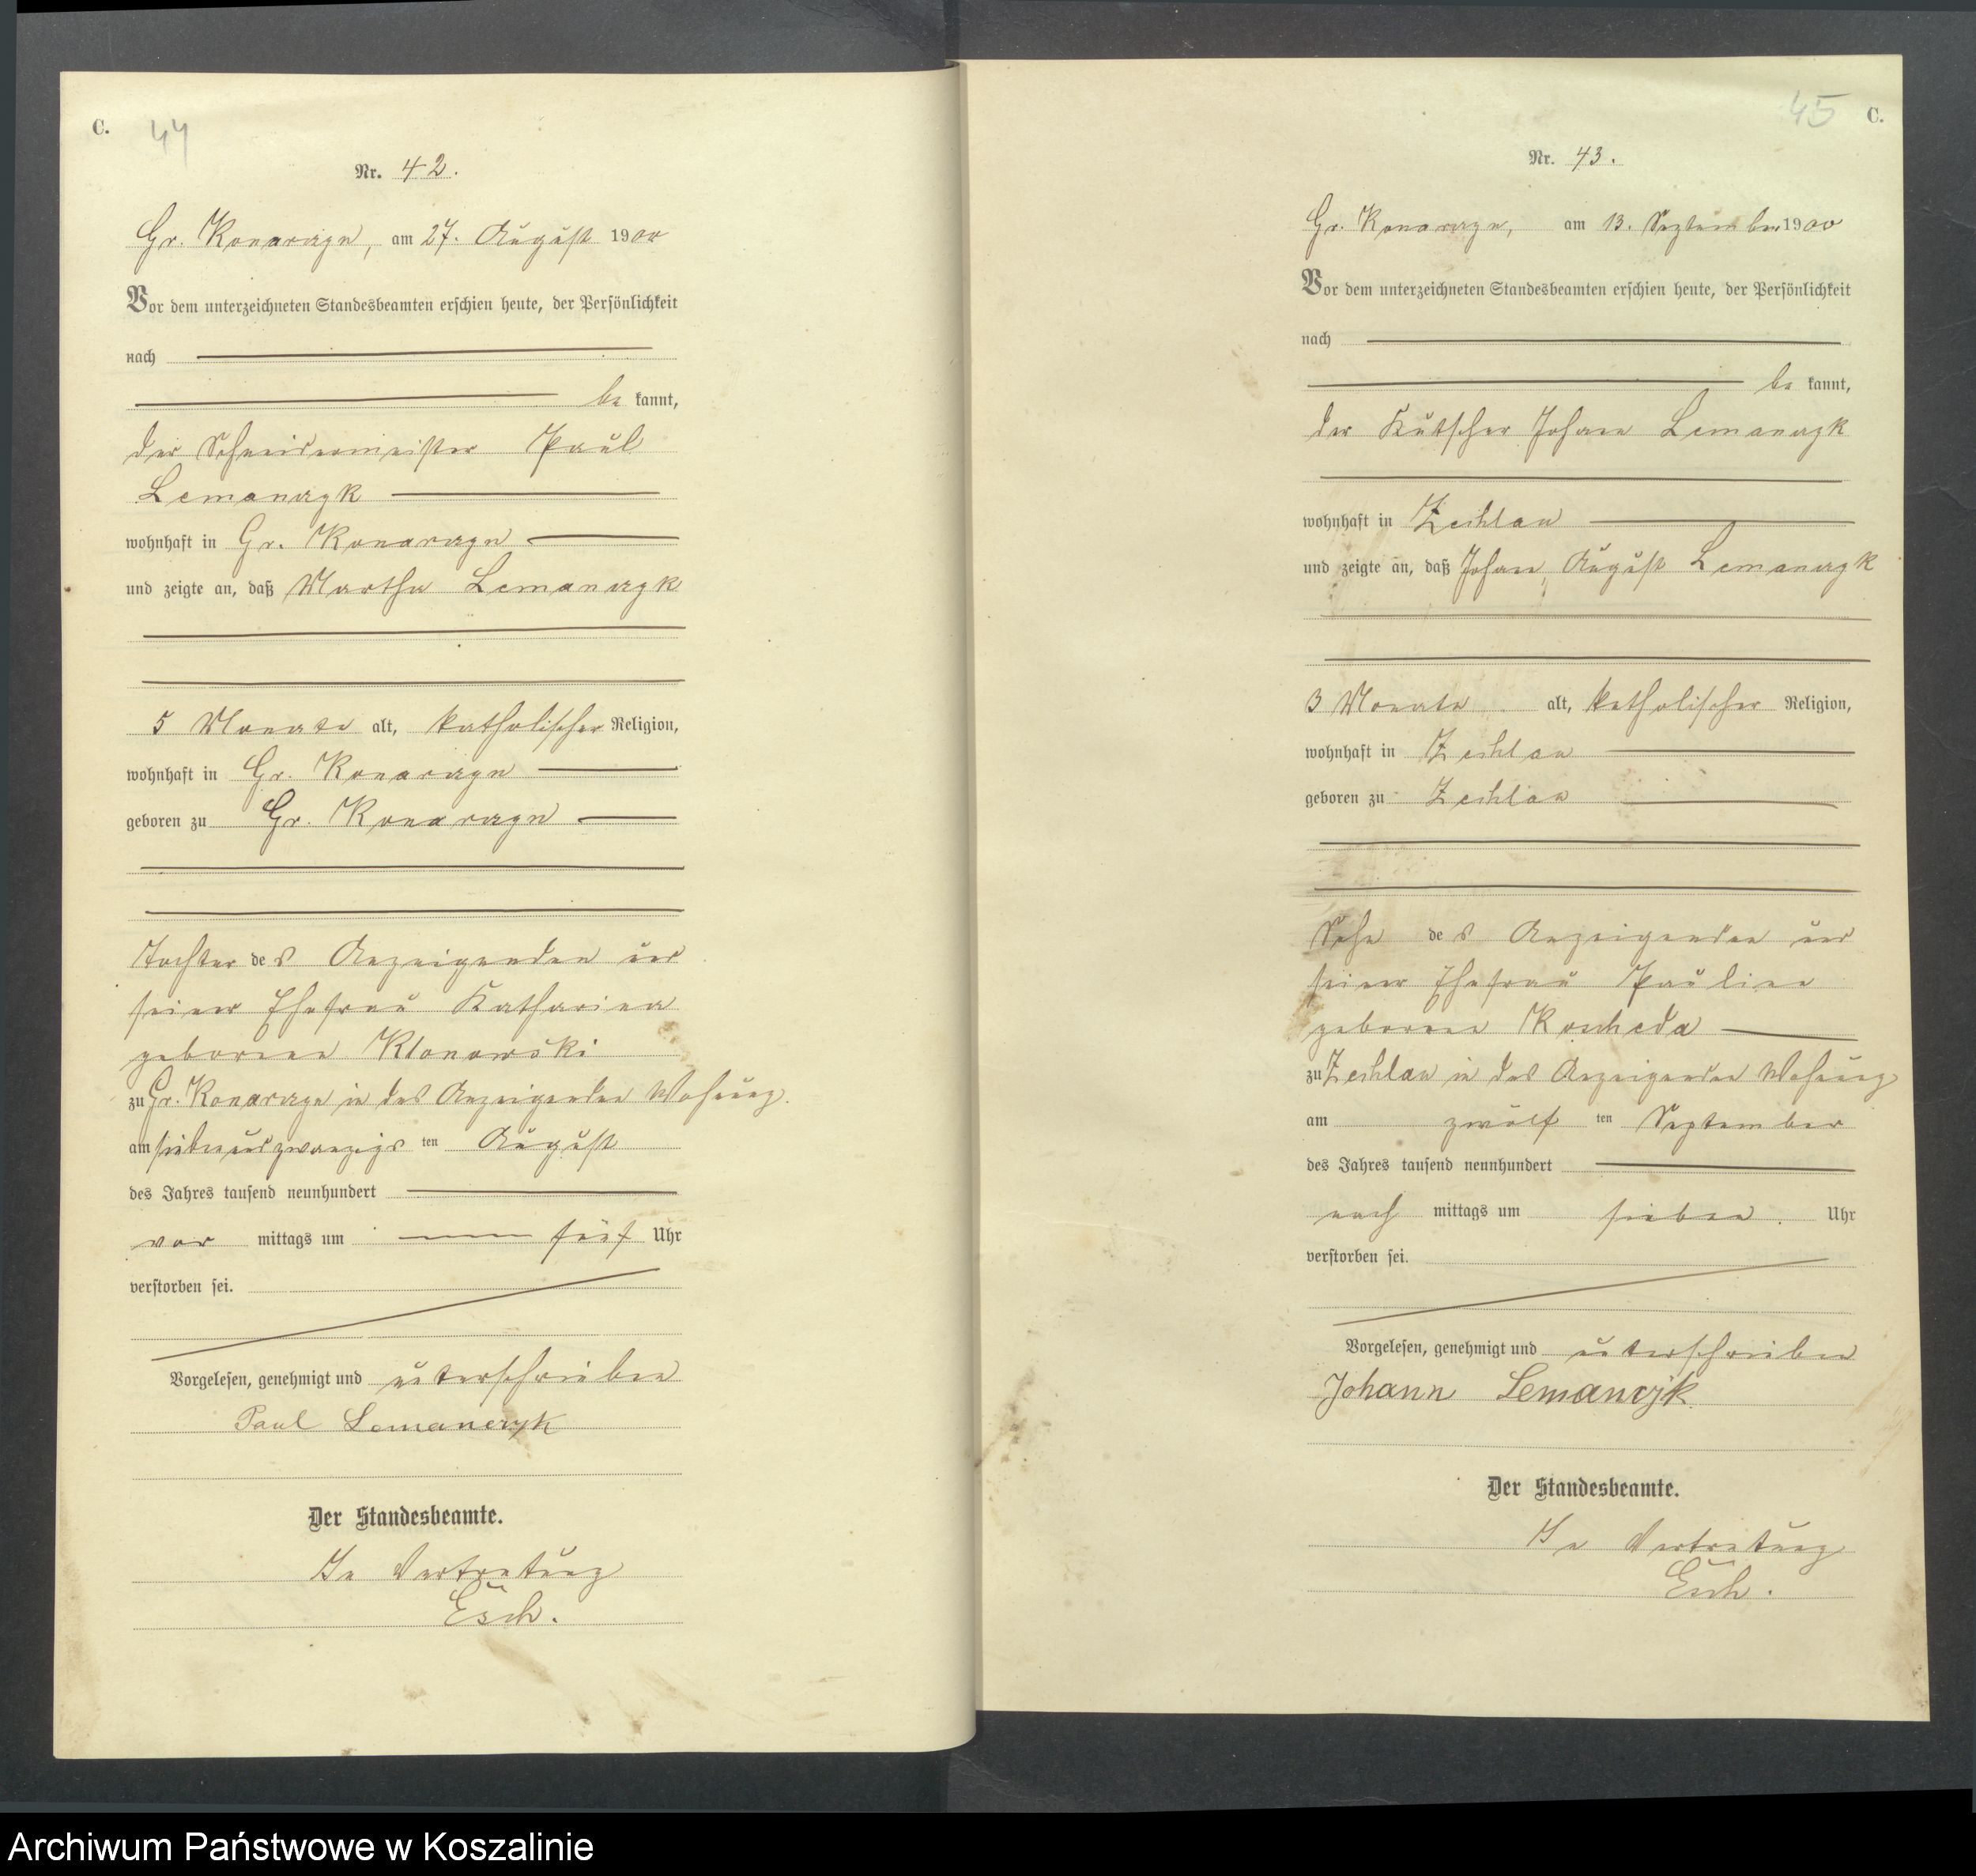 C.
44
Nr. 42.
Gr. Konarczyn, am 27. August 1900
Vor dem unterzeichneten Standesbeamten erschien heute, der Persönlichkeit
nach
be kannt,
der Schneidermeister Paul
Lemanczyk
wohnhaft in Gr. Konarczyn
und zeigte an, daß Martha Lemanczyk
5 Monate alt, katholischer Religion,
wohnhaft in Gr. Konarczyn
geboren zu Gr. Konarczyn
Tochter des Anzeigenden und
seiner Ehefrau Katharina
geborenen Klonowski
zu Gr. Konarczyn in des Anzeigenden Wohnung.
am siebenundzwanzigs ten August
des Jahres tausend neunhundert
vor mittags um fünf Uhr
verstorben sei.
Vorgelesen, genehmigt und unterschrieben
Paul Lemanczyk
Der Standesbeamte.
In Vertretung
Esch.
45
C.
Nr. 43.
Gr. Konarczyn, am 13. September 1900
Vor dem unterzeichneten Standesbeamten erschien heute, der Persönlichkeit
nach
be kannt,
der Kutscher Johann Lemanczyk
wohnhaft in Zechlau
und zeigte an, daß Johann, August Lemanczyk
3 Monate alt, katholischer Religion,
wohnhaft in Zechlau
geboren zu Zechlau
Sohn des Anzeigenden und
seiner Ehefrau Pauline
geborenen Roscheda
zu Zechlau in des Anzeigenden Wohnung
am zwölf ten September
des Jahres tausend neunhundert
nach mittags um sieben Uhr
verstorben sei.
Vorgelesen, genehmigt und unterschrieben
Johann Lemanczjk
Der Standesbeamte.
In Vertretung
Esch.
Archiwum Państwowe w Koszalinie